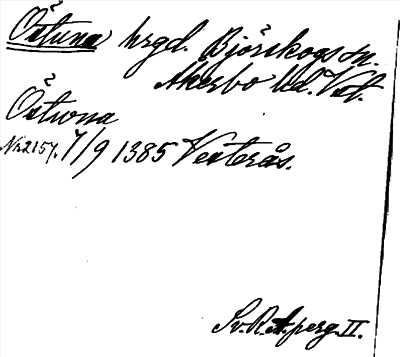 Östuna hrgd. Björskogs sn.
Akerbo hd. Vstl.
Östuona
Nr 2157. 7/9 1385 Vesterås.
Sv. R. A. perg. II.